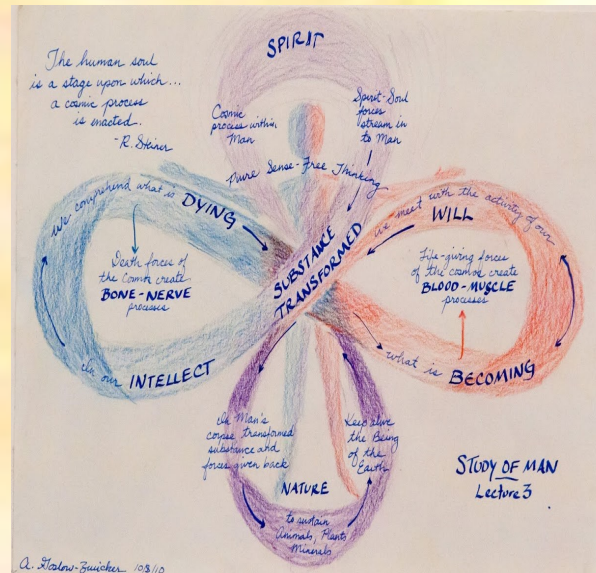 The human soul
is a stage upon which...
a cosmic process
is enacted.
- R. Steiner
SPIRIT
Cosmic
process within
Man
Spirit-Soul
forces
stream in
to Man
Pure Sense-Free Thinking
we comprehend what is DYING
Death forces of
the Cosmos create
BONE-NERVE
processes
In our INTELLECT
SUBSTANCE
TRANSFORMED
we meet with the activity of our
WILL
Life-giving forces
of the cosmos create
BLOOD-MUSCLE
processes
what is BECOMING
In Man's
corpse transformed
substance and
forces given back
Keep alive
the Being
of the
Earth
NATURE
to sustain
Animals, Plants
Minerals
STUDY OF MAN
Lecture 3
A. Goslow-Zwicker 10/8/10